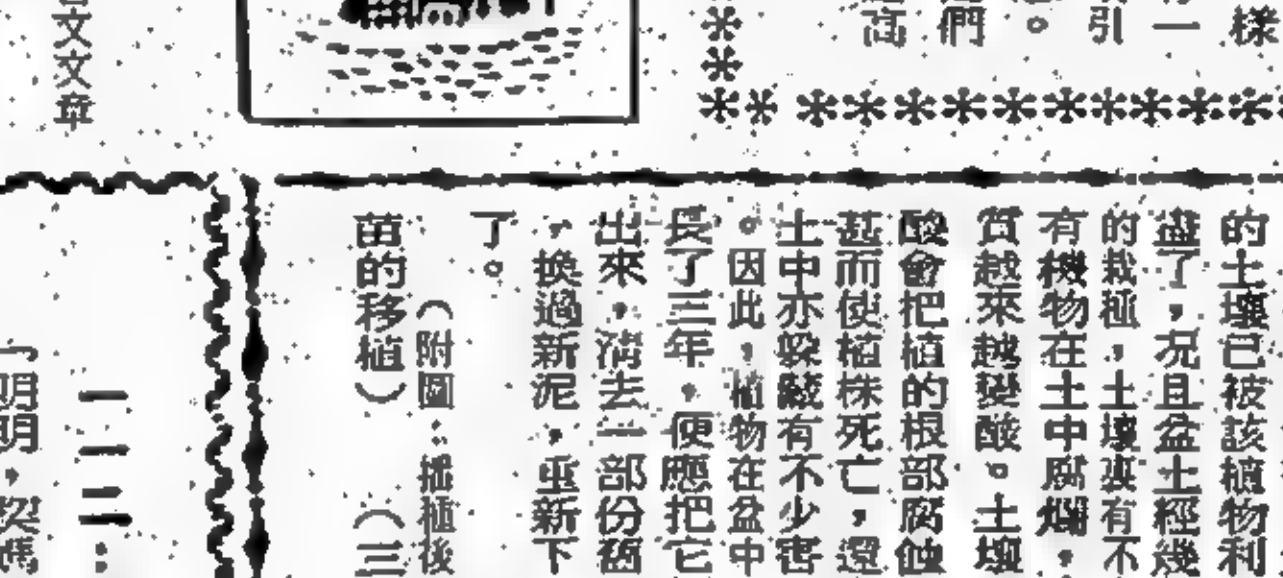 樣
一
引
。
們
高
文文章
的土壤已被該植物利
盡了，況且盆土經幾
的栽種，土壤裏有不
有機物在土中腐爛，
質越來越變酸。土壤
酸會把植的根部腐蝕
甚而使植株死亡，還
土中亦躲藏有不少害
。因此，植物在盆中
長了三年，便應把它
出來，清去一部份舊
，換過新泥，重新下
了。
（附圖：播種後
苗的移植）（三
一二二：
「明明，契媽